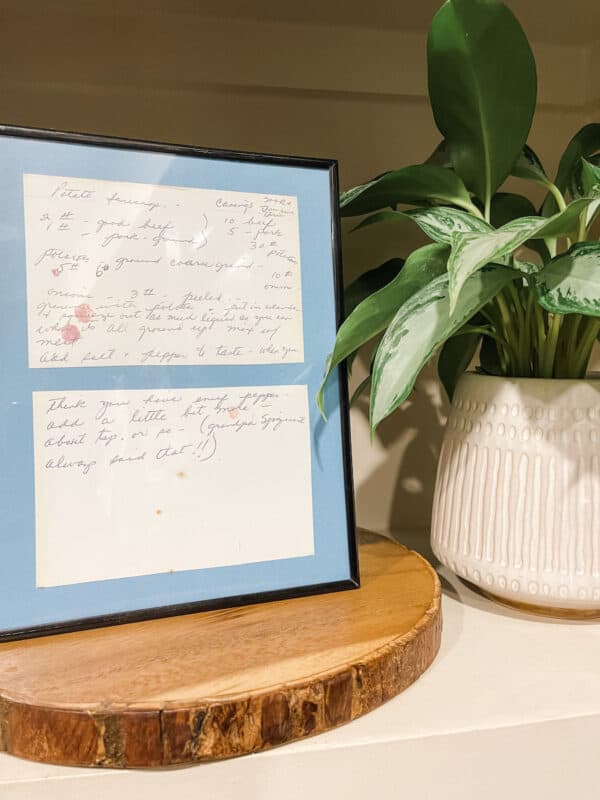 Potato Sausage -
Casings Soak &
2 # - good beef ) 10 beef
1 # - pork - ground ) 5 - pork
30 # potatoes
potatoes
5 # 6 # ground coarse ground - 10 #
onions - 3 # - peeled -
ground with potatoes - put in
& squeeze out as much liquid as you can
when is all ground up mix
meat
add salt & pepper to taste - when you
think you have enuf pepper -
add a little bit more -
about tsp. or so - (grandpa
always said that!!)